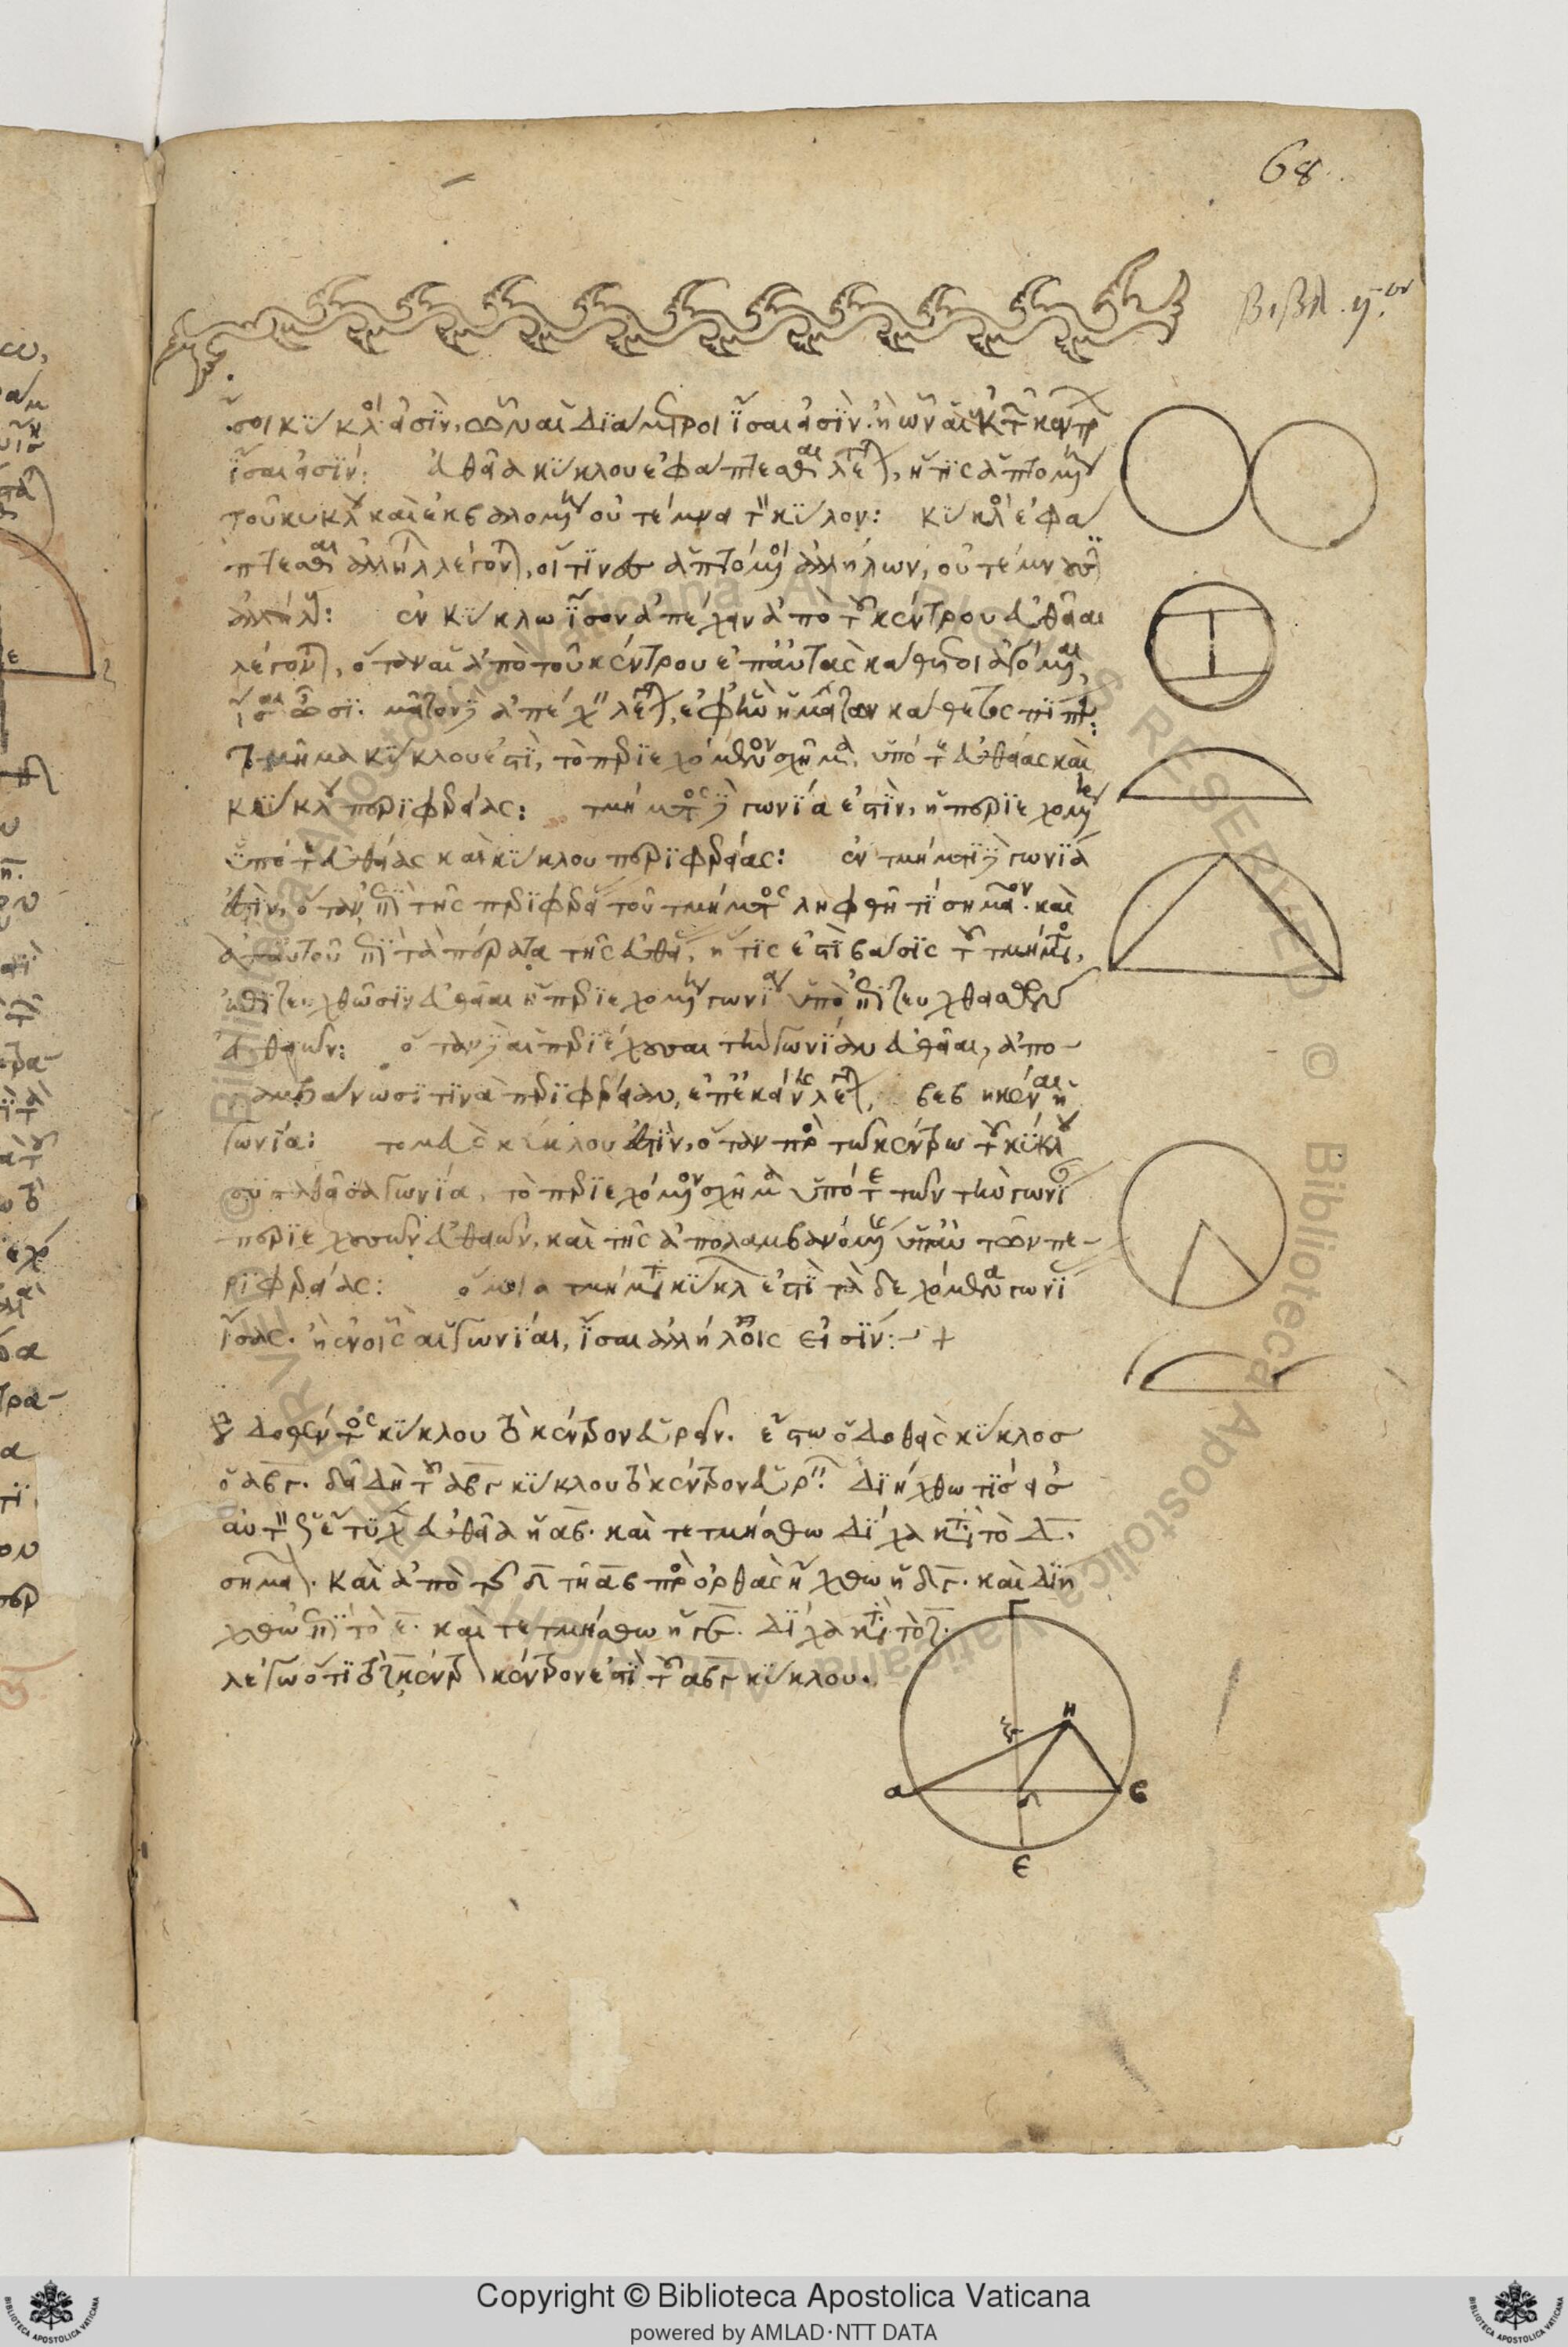 68
βιβλ. γ.ον
ἴσοι κύκλοι εἰσὶν, ὧν αἱ διάμετροι ἴσαι εἰσὶν· ἢ ὧν αἱ ἐκ τῶν κέντρων
ἴσαι εἰσίν: εὐθεῖα κύκλου ἐφάπτεσθαι λέγεται, ἥτις ἁπτομένη
τοῦ κύκλου καὶ ἐκβαλλομένη οὐ τέμνει τὸν κύκλον: κύκλοι ἐφά
πτεσθαι ἀλλήλων λέγονται, οἵτινες ἁπτόμενοι ἀλλήλων, οὐ τέμνουσιν
ἀλλήλους: ἐν κύκλω ἴσον ἀπέχειν ἀπὸ τοῦ κέντρου εὐθεῖαι
λέγονται, ὅταν αἱ ἀπὸ τοῦ κέντρου ἐπ' αὐτὰς κάθετοι ἀγόμεναι,
ἴσαι ὦσι. μεῖζον δὲ ἀπέχειν λέγεται, ἐφ' ἣν ἡ μείζων κάθετος πίπτει:
τμῆμα κύκλου ἐστὶ, τὸ περιεχόμενον σχῆμα, ὑπό τε εὐθείας καὶ
κύκλου περιφερείας: τμήματος δὲ γωνία ἐστὶν, ἡ περιεχομένη
ὑπό τε εὐθείας καὶ κύκλου περιφερείας: ἐν τμήματι δὲ γωνία
ἐστὶν, ὅταν ἐπὶ τῆς περιφερείας τοῦ τμήματος ληφθῇ τι σημεῖον· καὶ
ἀπ' αὐτοῦ ἐπὶ τὰ πέρατα τῆς εὐθείας, ἥτις ἐστὶ βάσις τοῦ τμήματος,
ἐπιζευχθῶσιν εὐθεῖαι ἡ περιεχομένη γωνία ὑπὸ ἐπιζευχθεισῶν
εὐθειῶν: ὅταν δὲ αἱ περιέχουσαι τὴν γωνίαν εὐθεῖαι, ἀπο-
λαμβάνωσί τινα περιφέρειαν, ἐπ' ἐκείνης λέγεται, βεβηκέναι ἡ
γωνία: τομεὺς κύκλου ἐστὶν, ὅταν πρὸς τῶ κέντρω τοῦ κύκλου
συσταθεῖσα γωνία, τὸ περιεχόμενον σχῆμα ὑπό τε τῶν τὴν γωνίαν
περιεχουσῶν εὐθειῶν, καὶ τῆς ἀπολαμβανομένης ὑπ' αὐτῶν πε-
ριφερείας: ὅμοια τμήματα κύκλου ἐστὶ τὰ δεχόμενα γωνίας
ἴσας· ἢ ἐν οἷς αἱ γωνίαι, ἴσαι ἀλλήλοις εἰσίν:- +
τοῦ δοθέντος κύκλου τὸ κέντρον εὑρεῖν. ἔστω ὁ δοθεὶς κύκλος
ὁ αβγ. δεῖ δὴ τοῦ αβγ κύκλου τὸ κέντρον εὑρεῖν. διήχθω τις εἰς
αὐτὸν ὡς ἔτυχεν εὐθεῖα ἡ αβ. καὶ τετμήσθω δίχα κατὰ τὸ δ
σημεῖον. καὶ ἀπὸ τοῦ δ τῇ αβ πρὸς ὀρθὰς ἤχθω ἡ δγ. καὶ διή
χθω ἐπὶ τὸ ε. καὶ τετμήσθω ἡ γε. δίχα κατὰ τὸ ζ.
λέγω ὅτι τὸ ζ κέντρον ἐστὶ τοῦ αβγ κύκλου.
Γ
Η
ζ
α
δ
β
ε
Copyright © Biblioteca Apostolica Vaticana
powered by AMLAD·NTT DATA